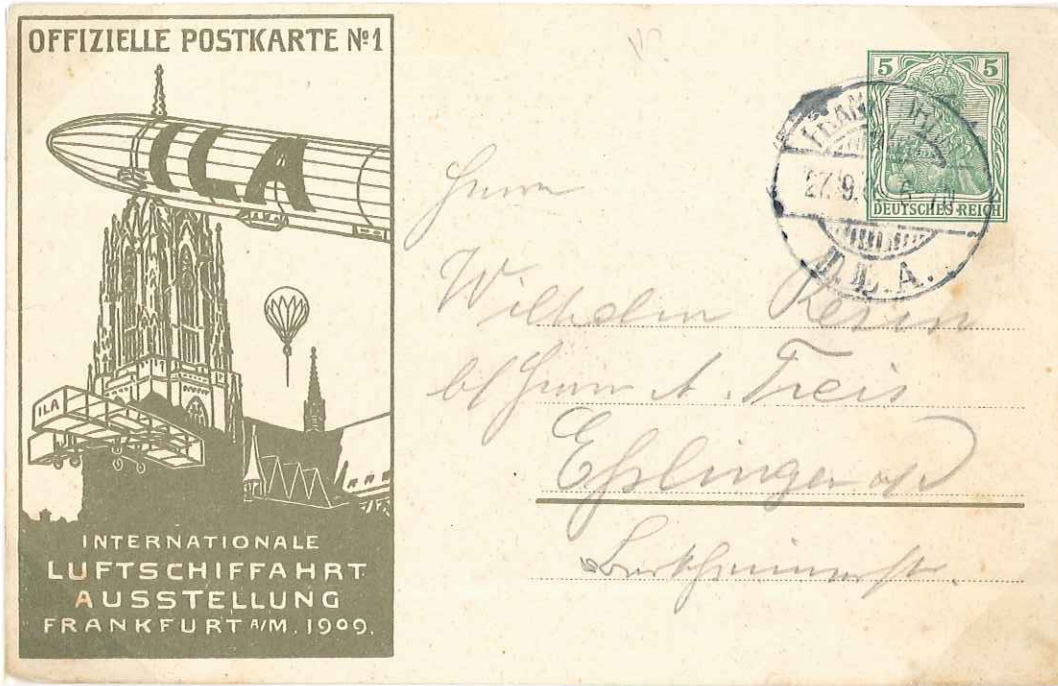 OFFIZIELLE POSTKARTE Nº1
ILA
ILA
INTERNATIONALE
LUFTSCHIFFAHRT
AUSSTELLUNG
FRANKFURT A/M. 1909.
5 5
DEUTSCHES REICH
27.9.
I.L.A.
Herrn
Wilhelm
b/ Herrn A. Treis
Eßlingen a/N